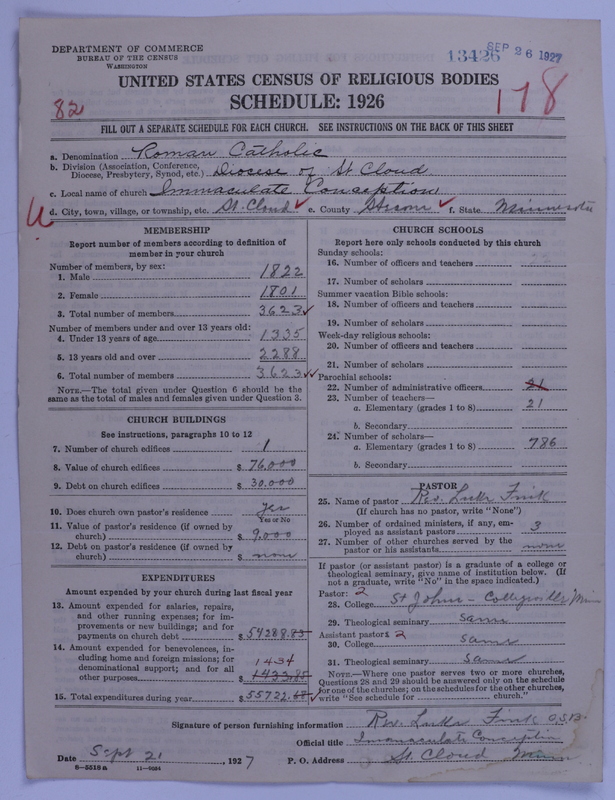 DEPARTMENT OF COMMERCE
BUREAU OF THE CENSUS
WASHINGTON
13426 SEP 26 1927
UNITED STATES CENSUS OF RELIGIOUS BODIES
SCHEDULE: 1926
82
178
FILL OUT A SEPARATE SCHEDULE FOR EACH CHURCH. SEE INSTRUCTIONS ON THE BACK OF THIS SHEET
a. Denomination Roman Catholic
b. Division (Association, Conference, Diocese, Presbytery, Synod, etc.) Diocese of St Cloud
c. Local name of church Immaculate Conception
d. City, town, village, or township, etc. St. Cloud e. County Stearns f. State Minnesota
MEMBERSHIP
Report number of members according to definition of
member in your church
Number of members, by sex:
1. Male 1822
2. Female 1801
3. Total number of members 3623
Number of members under and over 13 years old:
4. Under 13 years of age 1335
5. 13 years old and over 2288
6. Total number of members 3623
NOTE.—The total given under Question 6 should be the
same as the total of males and females given under Question 3.
CHURCH BUILDINGS
See instructions, paragraphs 10 to 12
7. Number of church edifices 1
8. Value of church edifices $ 76,000
9. Debt on church edifices $ 30,000
10. Does church own pastor's residence yes
Yes or No
11. Value of pastor's residence (if owned by
church) $ 9,000
12. Debt on pastor's residence (if owned by
church) $ none
EXPENDITURES
Amount expended by your church during last fiscal year
13. Amount expended for salaries, repairs,
and other running expenses; for im-
provements or new buildings; and for
payments on church debt $ 54288.83
14. Amount expended for benevolences, in-
cluding home and foreign missions; for
denominational support; and for all 1434
other purposes $ 1433.85
15. Total expenditures during year $ 55722.68
CHURCH SCHOOLS
Report here only schools conducted by this church
Sunday schools:
16. Number of officers and teachers
17. Number of scholars
Summer vacation Bible schools:
18. Number of officers and teachers
19. Number of scholars
Week-day religious schools:
20. Number of officers and teachers
21. Number of scholars
Parochial schools:
22. Number of administrative officers 21
23. Number of teachers—
a. Elementary (grades 1 to 8) 21
b. Secondary
24. Number of scholars—
a. Elementary (grades 1 to 8) 786
b. Secondary
PASTOR
25. Name of pastor Rev. Luke Fink
(If church has no pastor, write "None")
26. Number of ordained ministers, if any, em-
ployed as assistant pastors 3
27. Number of other churches served by the
pastor or his assistants none
If pastor (or assistant pastor) is a graduate of a college or
theological seminary, give name of institution below. (If
not a graduate, write "No" in the space indicated.)
Pastor: 2
28. College St Johns - Collegeville Minn
29. Theological seminary same
Assistant pastor: 2
30. College same
31. Theological seminary same
NOTE.—Where one pastor serves two or more churches,
Questions 28 and 29 should be answered only on the schedule
for one of the churches; on the schedules for the other churches,
write "See schedule for church."
Signature of person furnishing information Rev. Luke Fink O.S.B.
Official title Immaculate Conception
Date Sept 21, 1927 P. O. Address St. Cloud Minn
6-5518a 11-9034